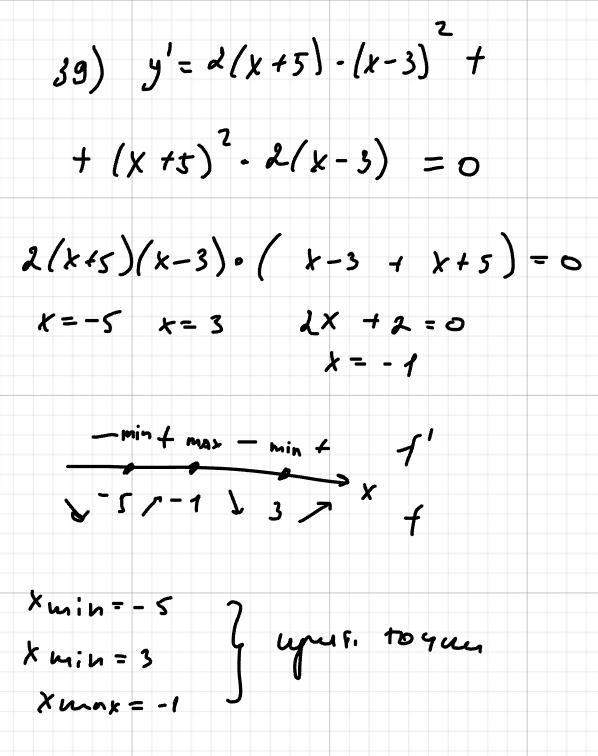 39) y' = 2(x+5)·(x-3)² +
+ (x+5)²·2(x-3) = 0
2(x+5)(x-3)·( x-3 + x+5) = 0
x=-5 x=3 2x +2=0
x = -1
— min + max — min + f'
↘ -5 ↗ -1 ↓ 3 ↗ x f
x min = -5
x min = 3 } крит. точки
x max = -1